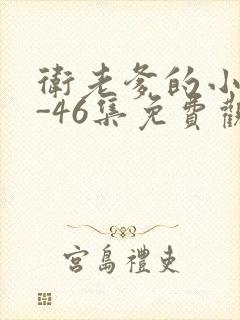 衛老爹的小
-46集免費觀
宮島禮吏